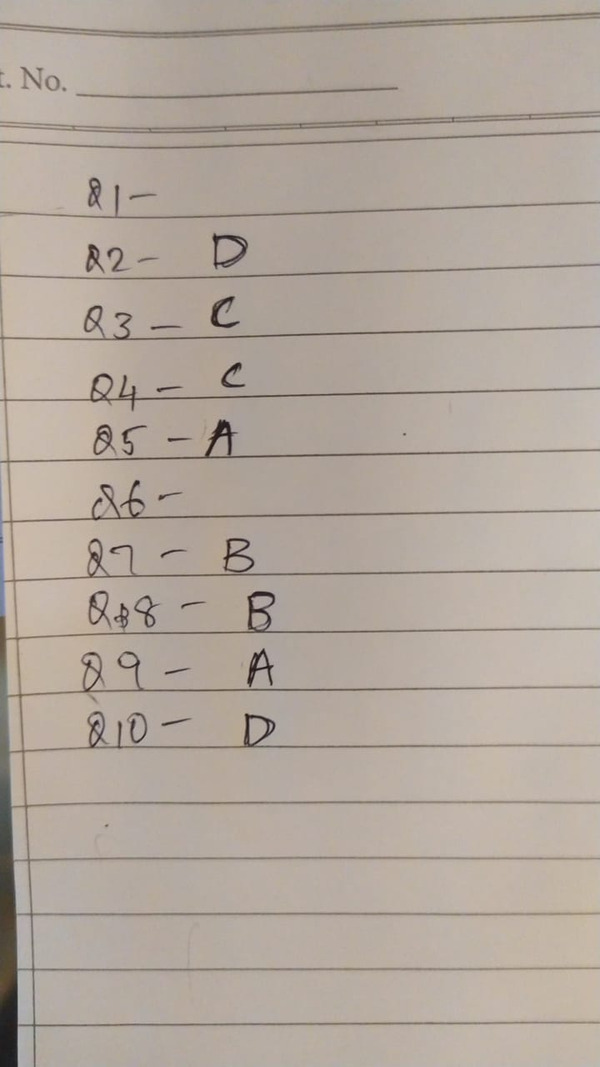 t. No.
Q1 -
Q2 - D
Q3 - C
Q4 - C
Q5 - A
Q6 -
Q7 - B
Q8 - B
Q9 - A
Q10 - D